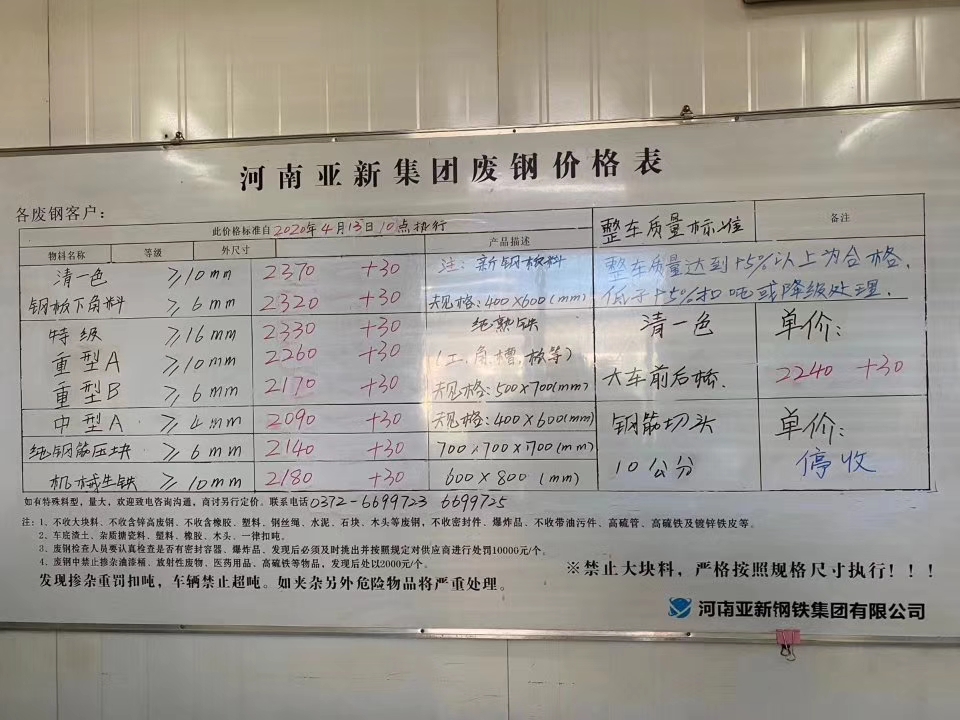 河南亚新集团废钢价格表
各废钢客户：
此价格标准自2020年4月13日10点执行 整车质量标准 备注
物料名称 等级 外尺寸 产品描述
清一色 ≥10mm 2370 +30 注：新钢板料 整车质量达到+5%以上为合格，
钢板下角料 ≥6mm 2320 +30 规格：400×600(mm) 低于+5%扣吨或降级处理．
特级 ≥16mm 2330 +30 纯熟铁 清一色 单价：
重型A ≥10mm 2260 +30 (工、角槽，板等)
重型B ≥6mm 2170 +30 规格：500×700(mm) 大车前后桥． 2240 +30
中型A ≥4mm 2090 +30 规格：400×600(mm) 钢筋切头 单价：
纯钢筋压块 ≥6mm 2140 +30 700×700×700(mm)
机械生铁 ≥10mm 2180 +30 600×800(mm) 10公分 停收
如有特殊料型，量大，欢迎致电咨询沟通，商讨另行定价。联系电话0372-6699723 6699725
注：1、不收大块料、不收含锌高废钢、不收含橡胶、塑料、钢丝绳、水泥、石块、木头等废钢，不收密封件、爆炸品、不收带油污件、高硫管、高硫铁及镀锌铁皮等。
2、车底渣土、杂质搪瓷料、塑料、橡胶、木头、一律扣吨。
3、废钢检查人员要认真检查是否有密封容器、爆炸品，发现后必须及时挑出并按照规定对供应商进行处罚10000元/个。
4、废钢中禁止掺杂油漆桶、放射性废物、医药用品、高硫铁等物品，发现后处以2000元/个。
发现掺杂重罚扣吨，车辆禁止超吨。如夹杂另外危险物品将严重处理。
※禁止大块料，严格按照规格尺寸执行！！！
河南亚新钢铁集团有限公司